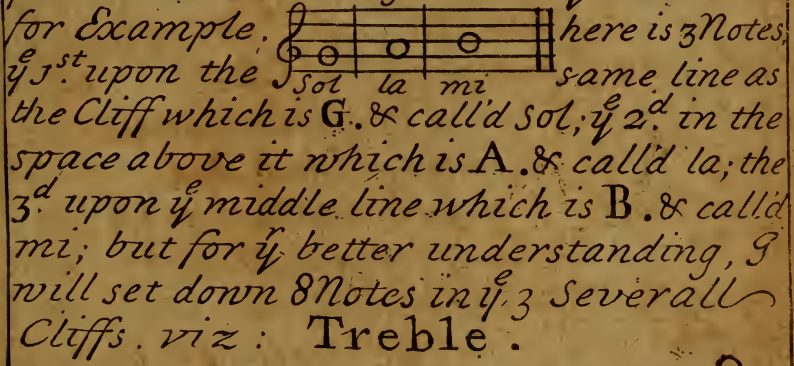 for Example. here is 3 Notes,
yͤ 1.ˢᵗ upon the Sol la mi same line as
the Cliff which is G. & call'd Sol; yͤ 2.ᵈ in the
space above it which is A. & call'd la; the
3.ᵈ upon yͤ middle line which is B. & call'd
mi; but for yͤ better understanding, I
will set down 8 Notes in yͤ 3 Severall
Cliffs. viz: Treble.